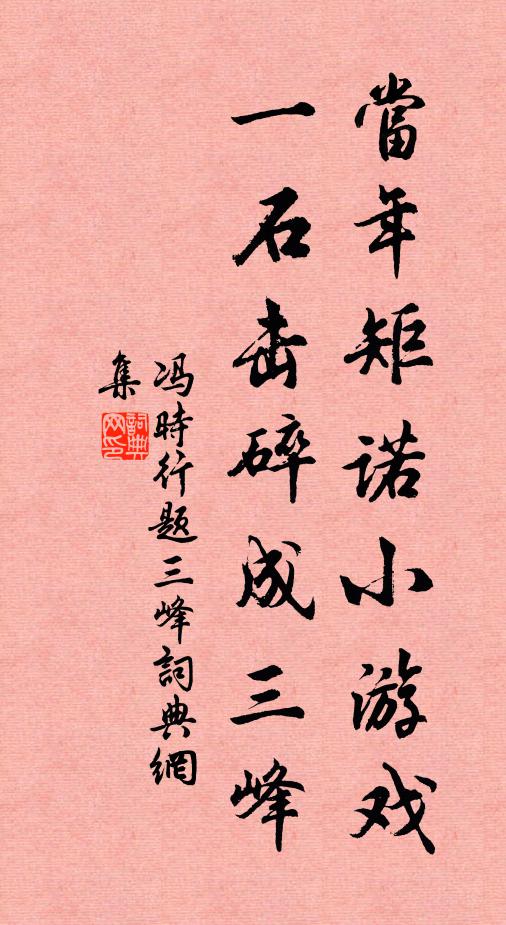 當年矩诺小游戏
一石击碎成三峰
冯時行题三峰詞典網
集
詞典网印